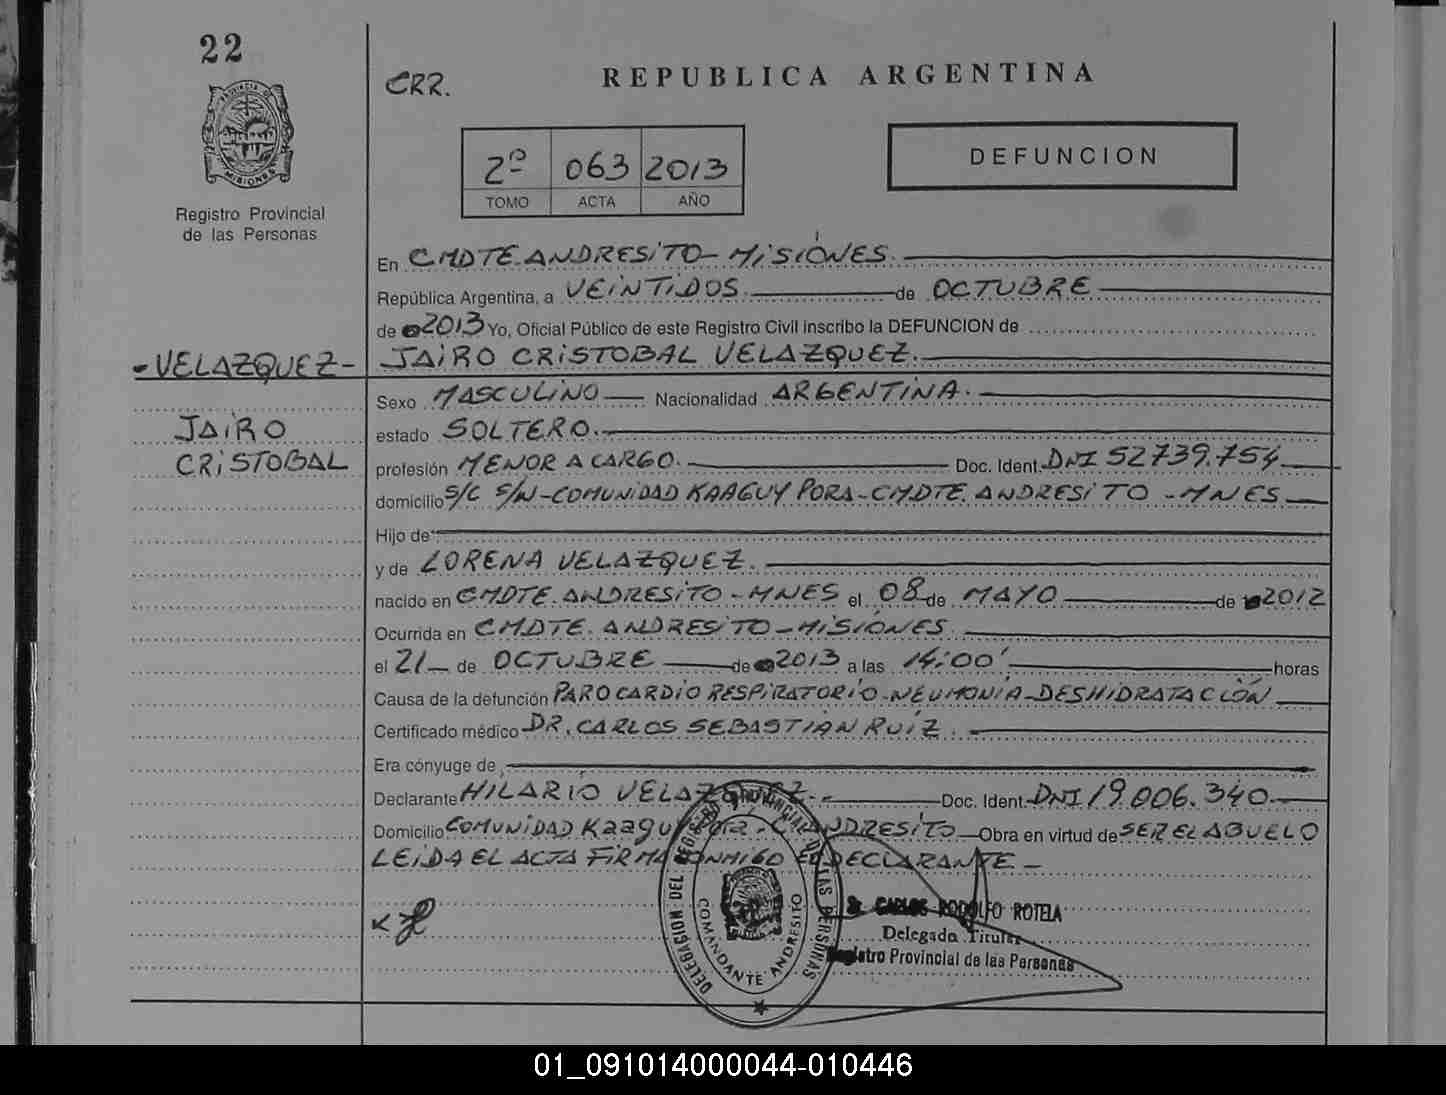 22
PROVINCIA DE
MISIONES
Registro Provincial
de las Personas
CRR.
REPUBLICA ARGENTINA
2º 063 2013
TOMO ACTA AÑO
DEFUNCION
En CMDTE. ANDRESITO - MISIONES.
República Argentina, a VEINTIDOS. de OCTUBRE
de 2013 Yo, Oficial Público de este Registro Civil inscribo la DEFUNCION de
- VELAZQUEZ - JAIRO CRISTOBAL VELAZQUEZ.
Sexo MASCULINO Nacionalidad ARGENTINA.
JAIRO estado SOLTERO.
CRISTOBAL profesión MENOR A CARGO. Doc. Ident. DNI 52739.754
domicilio S/C S/N - COMUNIDAD KAAGUY PORA - CMDTE. ANDRESITO - MNES
Hijo de
y de LORENA VELAZQUEZ.
nacido en CMDTE. ANDRESITO - MNES el 08 de MAYO de 2012
Ocurrida en CMDTE. ANDRESITO - MISIONES.
el 21 de OCTUBRE de 2013 a las 14:00' horas
Causa de la defunción PARO CARDIO RESPIRATORIO - NEUMONIA - DESHIDRATACIÓN
Certificado médico DR. CARLOS SEBASTIAN RUIZ.
Era cónyuge de
Declarante HILARIO VELAZQUEZ. - Doc. Ident. DNI 19.006.340
Domicilio COMUNIDAD Kaaguy Pora - C. ANDRESITO Obra en virtud de SER EL ABUELO
LEIDA EL ACTA FIRMA CONMIGO EL DECLARANTE -
DELEGACION DEL REGISTRO PROVINCIAL DE LAS PERSONAS
COMANDANTE ANDRESITO
Sr. CARLOS RODOLFO ROTELA
Delegado Titular
Registro Provincial de las Personas
01_091014000044-010446